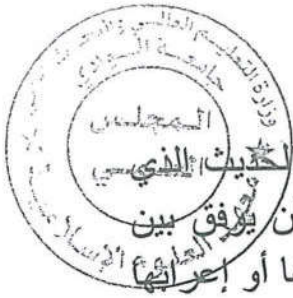 وزارة التعليم العالي والبحث العلمي
جامعة الوادي
المجلس
العلمي
معهد العلوم الإسلامية
الحديث الذي
ن يوفق بين
ا أو إعرابها